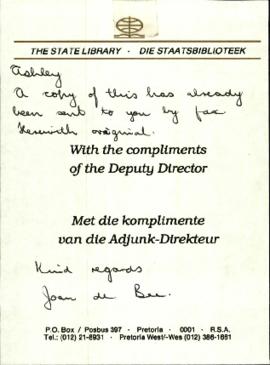 THE STATE LIBRARY · DIE STAATSBIBLIOTEEK
Ashley
A copy of this has already
been sent to you by fax
Herewith original.
With the compliments
of the Deputy Director
Met die komplimente
van die Adjunk-Direkteur
Kind regards
Joan de Bee.
P.O. Box / Posbus 397 · Pretoria · 0001 · R.S.A.
Tel.: (012) 21-8931 · Pretoria West/-Wes (012) 386-1661